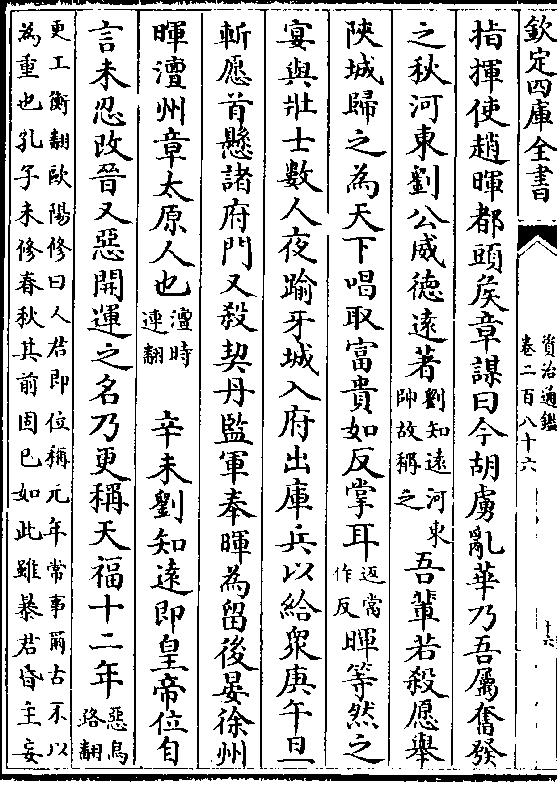 欽定四庫全書
資治通鑑
卷二百八十六
十六
指揮使趙暉都頭矦章謀曰今胡虜亂華乃吾屬奮發
之秋河東劉公威德遠著劉知遠河東帥故稱之吾輩若殺愿舉
陜城歸之為天下唱取富貴如反掌耳返當作反暉等然之
宴與壯士數人夜踰牙城入府出庫兵以給衆庚午旦
斬愿首懸諸府門又殺契丹監軍奉暉為留後晏徐州
暉澶州章太原人也澶時連翻辛未劉知遠即皇帝位自
言未忍改晉又惡開運之名乃更稱天福十二年惡烏路翻
更工衡翻歐陽修曰人君即位稱元年常事爾古不以
為重也孔子未修春秋其前固已如此雖暴君昏主妄